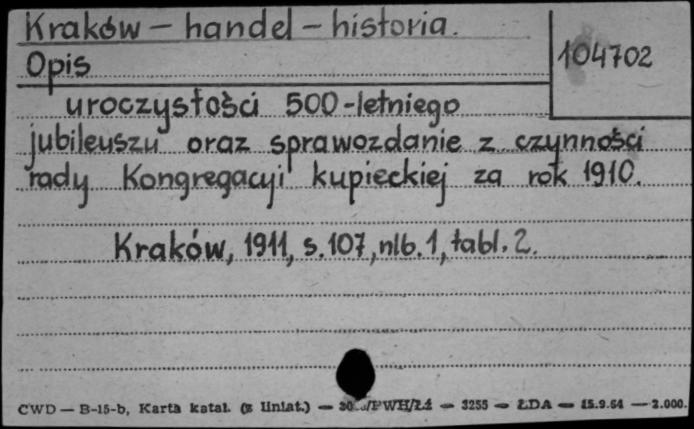 Kraków – handel – historia.
104702
Opis
uroczystości 500-letniego
jubileuszu oraz sprawozdanie z czynności
rady Kongregacyi kupieckiej za rok 1910.
Kraków, 1911, s. 107, nlb. 1, tabl. 2.
CWD — B-15-b, Karta katal. (z liniat.) — /PWH/Łź — 3255 — ŁDA — 15.9.64 — 2.000.